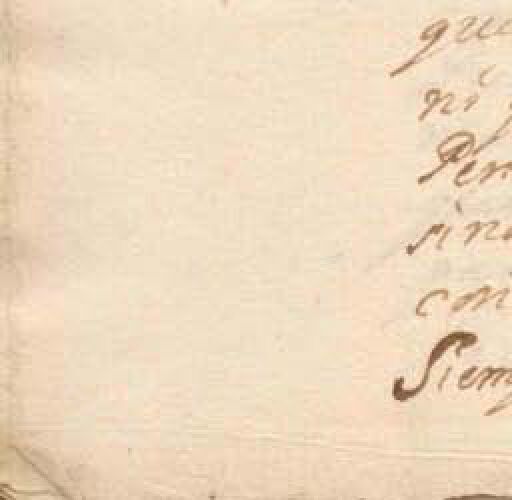 que
ni
Pen
sino
con
Siemp